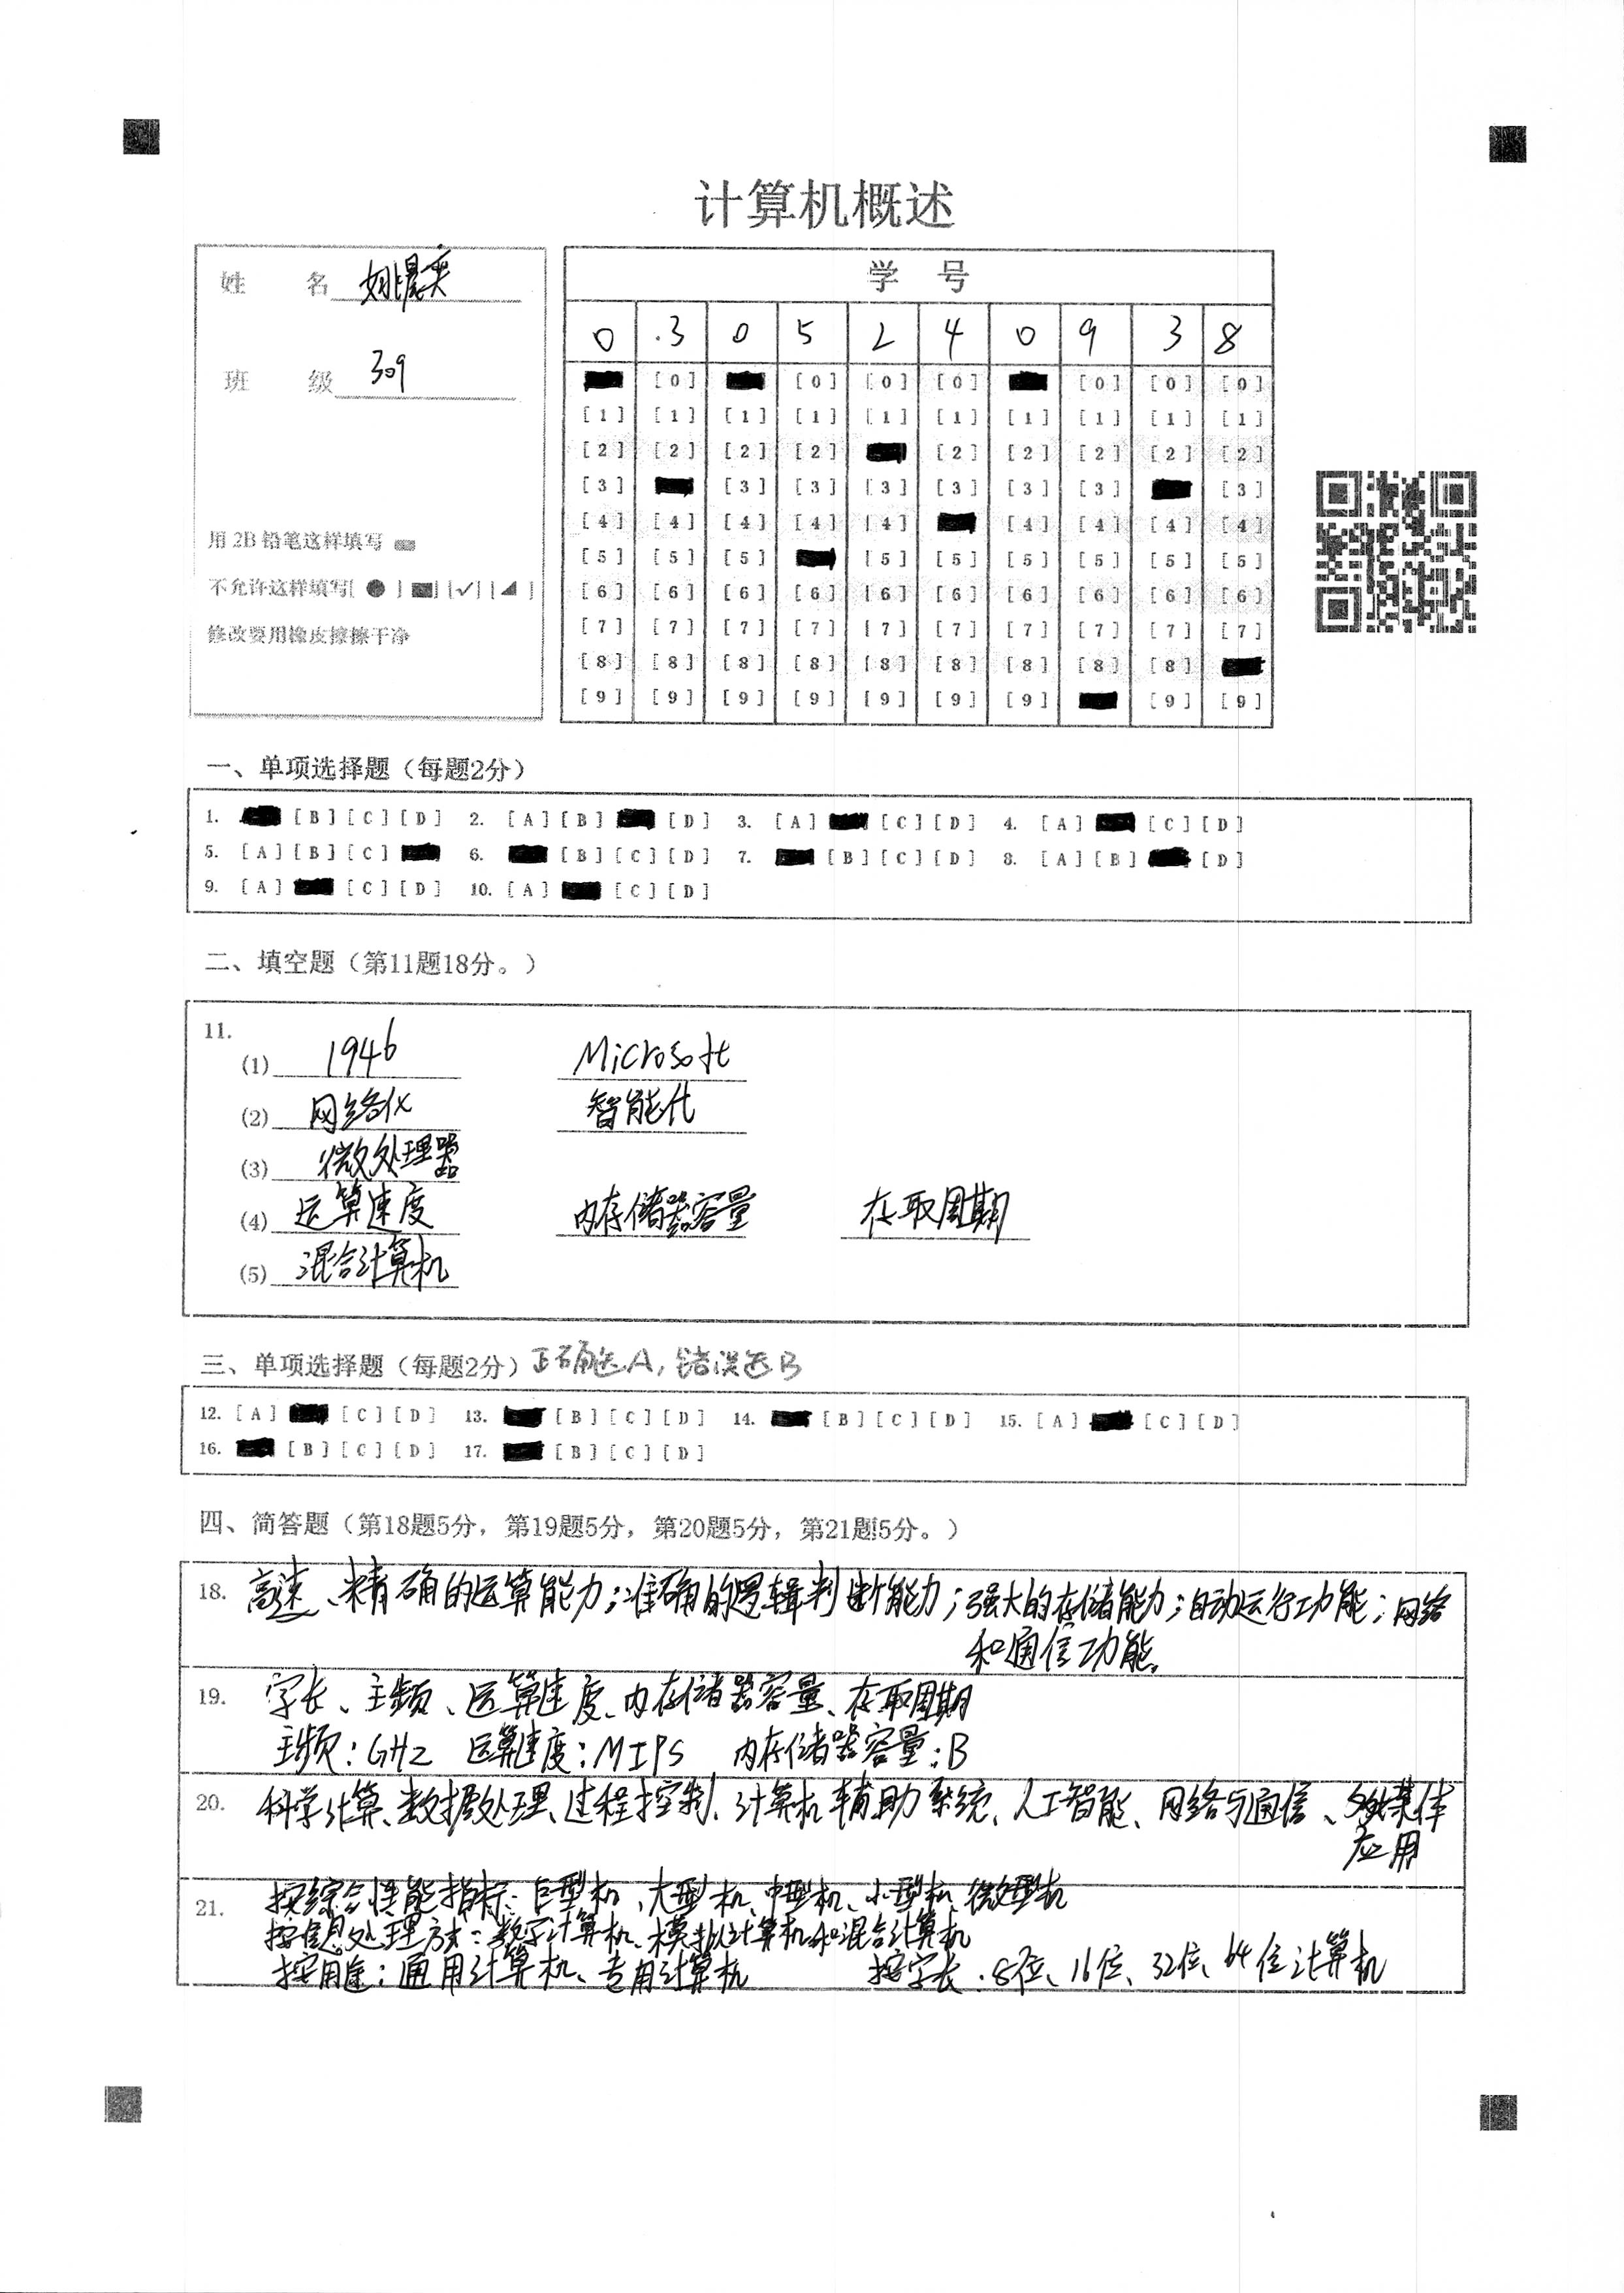 计算机概述
姓 名
班 级 309
用 2B 铅笔这样填写
不允许这样填写[ ● ] [ ] [✓] [◢ ]
修改要用橡皮擦擦干净
学 号
0 3 0 5 2 4 0 9 3 8
[0] [0] [0] [0] [0] [0] [0]
[1] [1] [1] [1] [1] [1] [1] [1] [1] [1]
[2] [2] [2] [2] [2] [2] [2] [2] [2]
[3] [3] [3] [3] [3] [3] [3] [3]
[4] [4] [4] [4] [4] [4] [4] [4] [4]
[5] [5] [5] [5] [5] [5] [5] [5] [5]
[6] [6] [6] [6] [6] [6] [6] [6] [6] [6]
[7] [7] [7] [7] [7] [7] [7] [7] [7] [7]
[8] [8] [8] [8] [8] [8] [8] [8] [8]
[9] [9] [9] [9] [9] [9] [9] [9] [9]
一、单项选择题（每题2分）
1. [B] [C] [D] 2. [A] [B] [D] 3. [A] [C] [D] 4. [A] [C] [D]
5. [A] [B] [C] 6. [B] [C] [D] 7. [B] [C] [D] 8. [A] [B] [D]
9. [A] [C] [D] 10. [A] [C] [D]
二、填空题（第11题18分。）
11.
(1) 1946 Microsoft
(2) 网络化 智能化
(3) 微处理器
(4) 运算速度 内存储器容量 存取周期
(5) 混合计算机
三、单项选择题（每题2分）正确选A，错误选B
12. [A] [C] [D] 13. [B] [C] [D] 14. [B] [C] [D] 15. [A] [C] [D]
16. [B] [C] [D] 17. [B] [C] [D]
四、简答题（第18题5分，第19题5分，第20题5分，第21题5分。）
18. 高速、精确的运算能力；准确的逻辑判断能力；强大的存储能力；自动运行功能；网络
和通信功能。
19. 字长、主频、运算速度、内存储器容量、存取周期
主频：GHz 运算速度：MIPS 内存储器容量：B
20. 科学计算、数据处理、过程控制、计算机辅助系统、人工智能、网络与通信、多媒体
应用
21. 按综合性能指标：巨型机、大型机、中型机、小型机、微型机
按信息处理方式：数字计算机、模拟计算机和混合计算机
按用途：通用计算机、专用计算机 按字长：8位、16位、32位、64位计算机